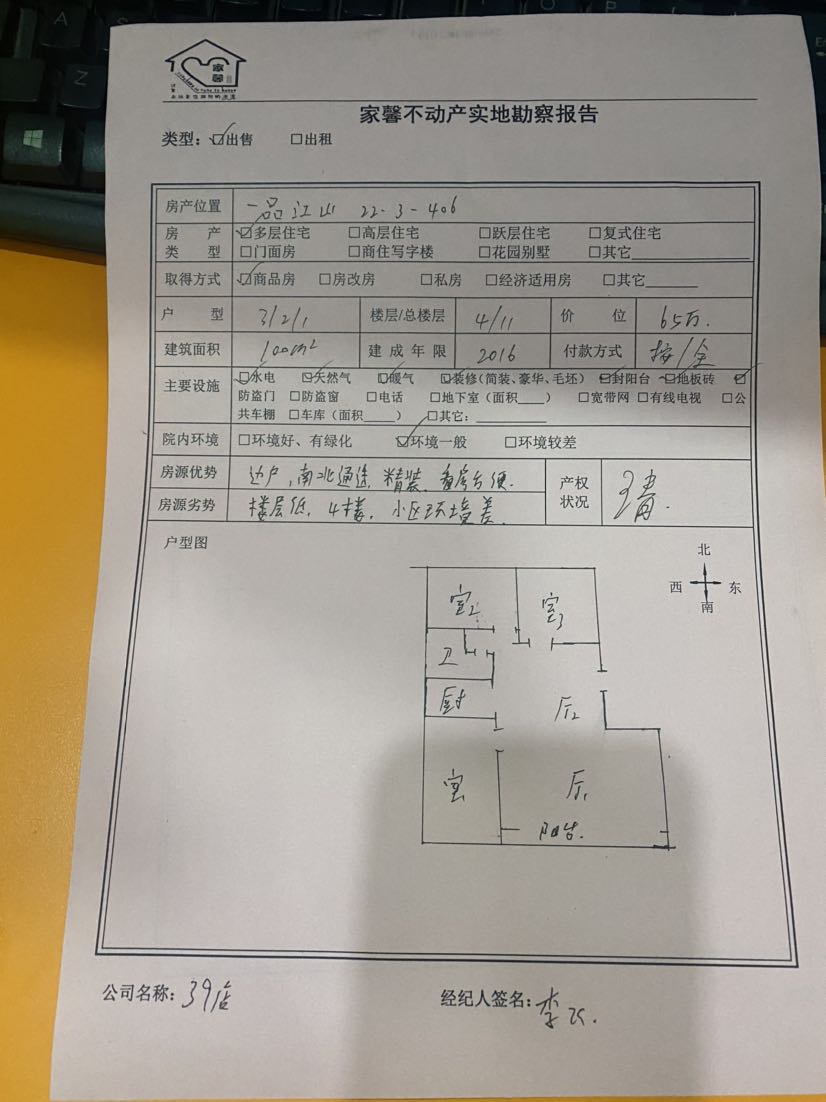 家馨
家馨不动产实地勘察报告
类型：☑出售 □出租
房产位置 一品江山 22-3-406
房产类型 ☑多层住宅 □高层住宅 □跃层住宅 □复式住宅
□门面房 □商住写字楼 □花园别墅 □其它
取得方式 ☑商品房 □房改房 □私房 □经济适用房 □其它
户型 3/2/1 楼层/总楼层 4/11 价位 65万.
建筑面积 100m² 建成年限 2016 付款方式 按/全
主要设施 ☑水电 ☑天然气 ☑暖气 ☑装修（简装、豪华、毛坯） ☑封阳台 ☑地板砖 ☑
防盗门 □防盗窗 □电话 □地下室（面积____） □宽带网 □有线电视 □公
共车棚 □车库（面积____） □其它：
院内环境 □环境好、有绿化 ☑环境一般 □环境较差
房源优势 边户，南北通透，精装，看房方便.
房源劣势 楼层低，4楼，小区环境差.
产权状况 清.
户型图
北
西 东
南
室2 室3
卫
厨
厅2
室 厅1
阳台.
公司名称：39店 经纪人签名：李